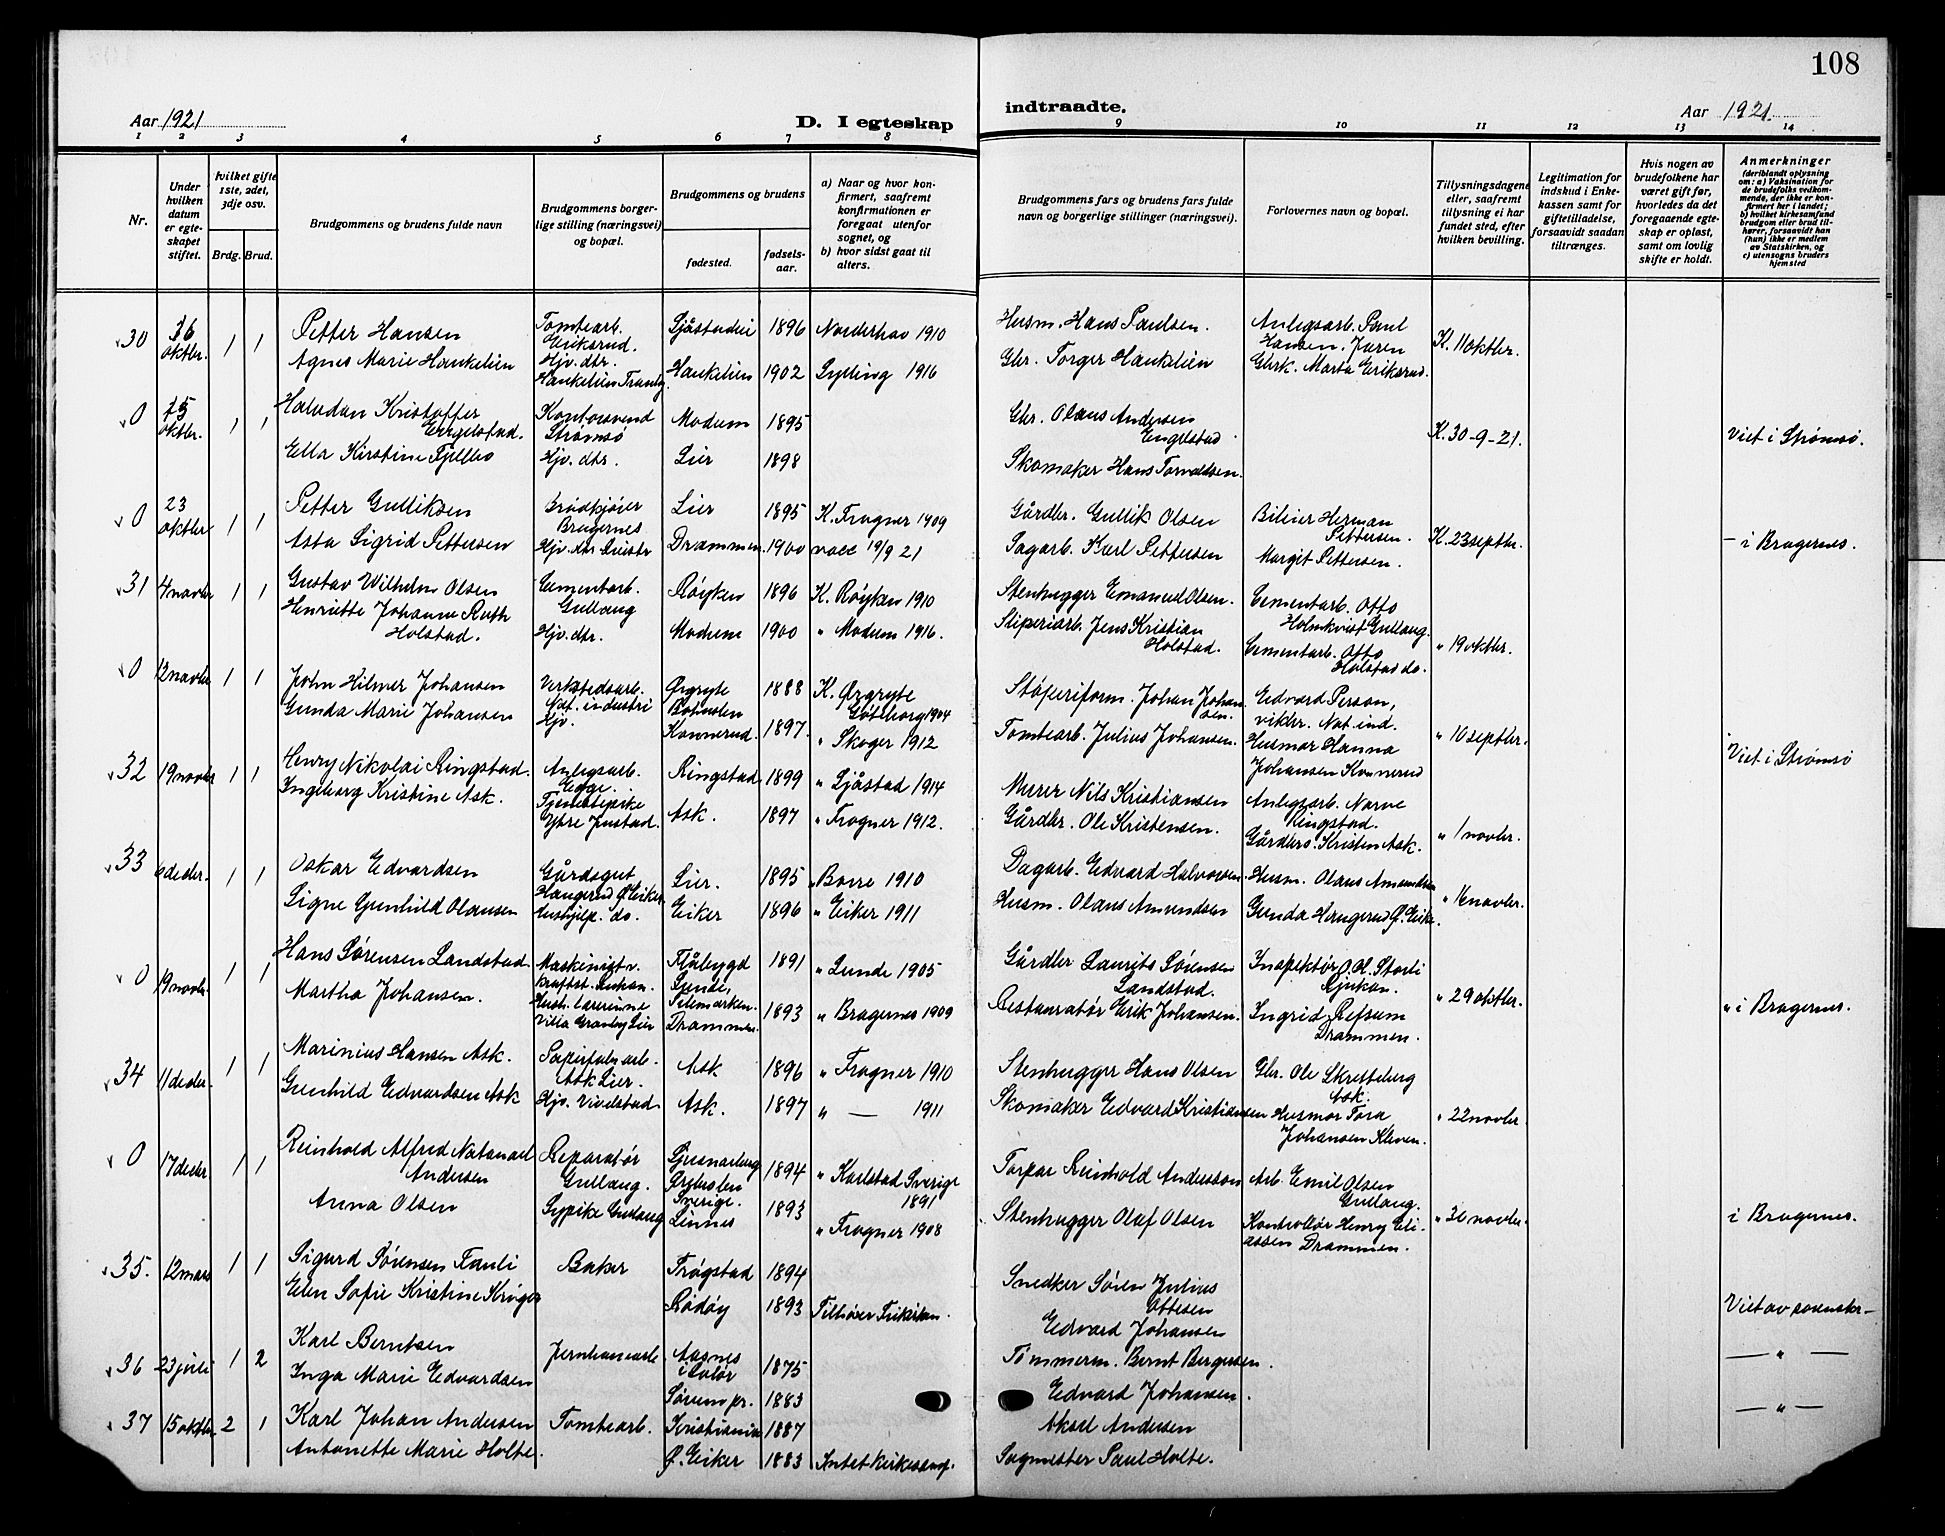 108
Aar 1921 D. I egteskap indtraadte. Aar 1921.
1 2 3 4 5 6 7 8 9 10 11 12 13 14
Nr.
Under hvilken datum er egteskapet stiftet.
hvilket gifte 1ste, 2det, 3dje osv.
Brdg. Brud.
Brudgommens og brudens fulde navn
Brudgommens borgerlige stilling (næringsvei) og bopæl.
Brudgommens og brudens
fødested.
fødselsaar.
a) Naar og hvor konfirmert, saafremt konfirmationen er foregaat utenfor sognet, og
b) hvor sidst gaat til alters.
Brudgommens fars og brudens fars fulde navn og borgerlige stillinger (næringsvei).
Forlovernes navn og bopæl.
Tillysningsdagene eller, saafremt tillysning ei har fundet sted, efter hvilken bevilling.
Legitimation for indskud i Enkekassen samt for giftetilladelse, forsaavidt saadan tiltrænges.
Hvis nogen av brudefolkene har været gift før, hvorledes da det foregaaende egteskap er opløst, samt om lovlig skifte er holdt.
Anmerkninger (deriblandt oplysning om: a) Vaksination for de brudefolks vedkommende, der ikke er konfirmert her i landet; b) hvilket kirkesamfund brudgom eller brud tilhører, forsaavidt han (hun) ikke er medlem av Statskirken, og c) utensogns bruders hjemsted
30 oktbr. 1 1 Petter Hansen Tomtearb. Eriksrud. 1896 Norderhov 1910 Husm. Hans Paulsen. Anlegsarb. Paul Hansen. K. 11 oktbr.
Agnes Marie Haukelien Hjv. dtr. Haukelien Tranby. Haukelien 1902 Sylling 1916 Gbr. Torger Haukelien Marta Eriksrud.
0 oktbr. 1 1 Halvdan Kristoffer Engelstad. Strømsø Modum 1895 Gbr. Olaus Andersen Engelstad K. 30-9-21. Viet i Strømsø.
Ella Kirstine Fjellbo Hjv. dtr. Lier 1898 Skomaker Hans Torvaldsen.
0 23 oktbr 1 1 Petter Gulliksen Brødkjører Bragernes Lier 1895 K. Frogner 1909 Gårdbr. Gullik Olsen Bileier Herman Pettersen. K. 23 septbr. — i Bragernes.
Asta Sigrid Pettersen Hjv. dtr. Drammen. 1900 19/9 21 Sagarb. Karl Pettersen Margit Pettersen.
31 4 novbr 1 1 Gustav Wilhelm Olsen Cementarb. Gullaug Røyken 1896 K. Røyken 1910 Stenhugger Emanuel Olsen. Cementarb. Otto Holmkvist Gullaug. " 19 oktbr.
Henriette Johanne Ruth Holstad. Hjv. dtr. Modum 1900 " Modum 1916. Sliperiarb. Jens Kristian Holstad. Cementarb. Otto Holstad do.
0 12 novbr 1 1 John Hilmer Johansen Verkstedsarb. Nat. industri Ørgryte 1888 K. Ørgryte Gøteborg 1904 Støperiform. Johan Johansen. Edvard Person, Nat. ind. " 10 septbr. Viet i Strømsø
Gunda Marie Johansen Hjv. Konnerud. 1897. " Skoger 1912 Tomtearb. Julius Johansen. Husmor Hanna Johansen Konnerud
32 19 novbr 1 1 Henry Nikolai Ringstad. Anlegsarb. Egge. Ringstad 1899 " Sjåstad 1914 Murer Nils Kristiansen Anlegsarb. Narve Ringstad. " 1 novbr.
Ingeborg Kristine Ask. Tjenestepike Ytre Justad. Ask. 1897 " Frogner 1912. Gårdbr. Ole Kristensen. Gårdbr. Kristen Ask.
33 6 decbr. 1 1 Oskar Edvardsen Gårdsgut Haugerud Ø. Eiker Lier. 1895 " Borre 1910 Dagarb. Edvard Halvorsen Husm. Olaus Amundsen " 16 novbr.
Signe Gunhild Olausen Hushjelp. do. Eiker 1896 " Eiker 1911 Husm. Olaus Amundsen Gunda Haugerud Ø. Eiker.
0 19 novbr. 1 1 Hans Sørensen Landstad Maskinist v. Flåbygd Lunde, Telemarken. 1891 " Lunde 1905 Gårdbr Laurits Sørensen Landstad. Inspektør O. H. Storli Rjukan. " 29 oktbr. " i Bragernes.
Martha Johansen. Hush. lærerinne Villa Granly Lier Drammen. 1893 " Bragernes 1909 Restauratør Erik Johansen. Ingrid Refsum Drammen.
34 11 decbr. 1 1 Marinius Hansen Ask. Papirfabr. arb. Ask Lier. Ask 1896 " Frogner 1910 Stenhugger Hans Olsen Gbr. Ole Skretteberg Ask. " 22 novbr.
Gunhild Edvardsen Ask Hjv. Vivelstad Ask. 1897 " — 1911 Skomaker Edvard Kristiansen Husmor Tora Johansen Kleven.
0 17 decbr 1 1 Reinhold Alfred Natanael Andersen Reparatør Gullaug. Ljusnarsberg Ørebrolen Sverige. 1894 " Karlstad Sverige 1891 Torpar Reinhold Andersson Arb. Emil Olsen Gullaug. " 30 novbr. i Bragernes.
Anna Olsen Sypike Gullaug Linnes 1893 " Frogner 1908 Stenhugger Olaf Olsen Kontrollør Henry Eliassen Drammen.
35. 12 mars 1 1 Sigurd Sørensen Fauli Baker Trøgstad 1894 Snedker Søren Julius Ottesen Viet av sorensk. —
Elen Sofie Kristine Krüger Rødøy 1893 Tilhører Frikirken. Edvard Johansen
36 23 juli 1 2 Karl Berntsen Jernbanearb. Aasnes i Solør 1875 Tømmerm. Bernt Bergersen. — " —
Inga Marie Edvardsen Sørum pr. 1883 Edvard Johansen.
37 15 oktbr. 2 1 Karl Johan Andersen Tomtearb. Kristiania 1887 Aksel Andersen — " —
Antonette Marie Holte. Ø. Eiker 1883 Intet kirkesamf. Sagmester Paul Holte.